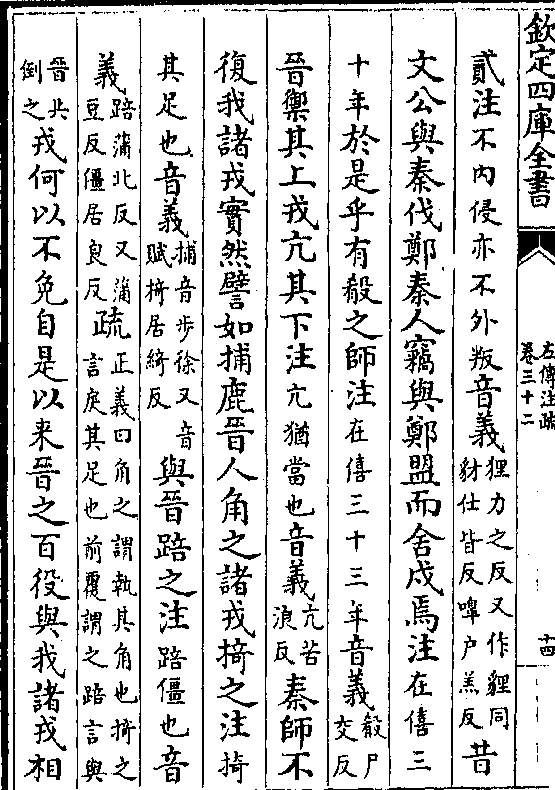 欽定四庫全書
左傳注疏
卷三十二
十四
貳注不内侵亦不外叛音義狸力之反又作貍同豺仕皆反嘷户羔反昔
文公與秦伐鄭秦人竊與鄭盟而舍戍焉注在僖三
十年於是乎有殽之師注在僖三十三年音義殽户交反
晉禦其上戎亢其下注亢猶當也音義亢苦浪反秦師不
復我諸戎實然譬如捕鹿晉人角之諸戎掎之注掎
其足也音義捕音步徐又音賦掎居綺反與晉踣之注踣僵也音
義踣蒲北反又蒲豆反僵居良反疏正義曰角之謂執其角也掎之言戾其足也前覆謂之踣言與
晉共倒之戎何以不免自是以来晉之百役與我諸戎相